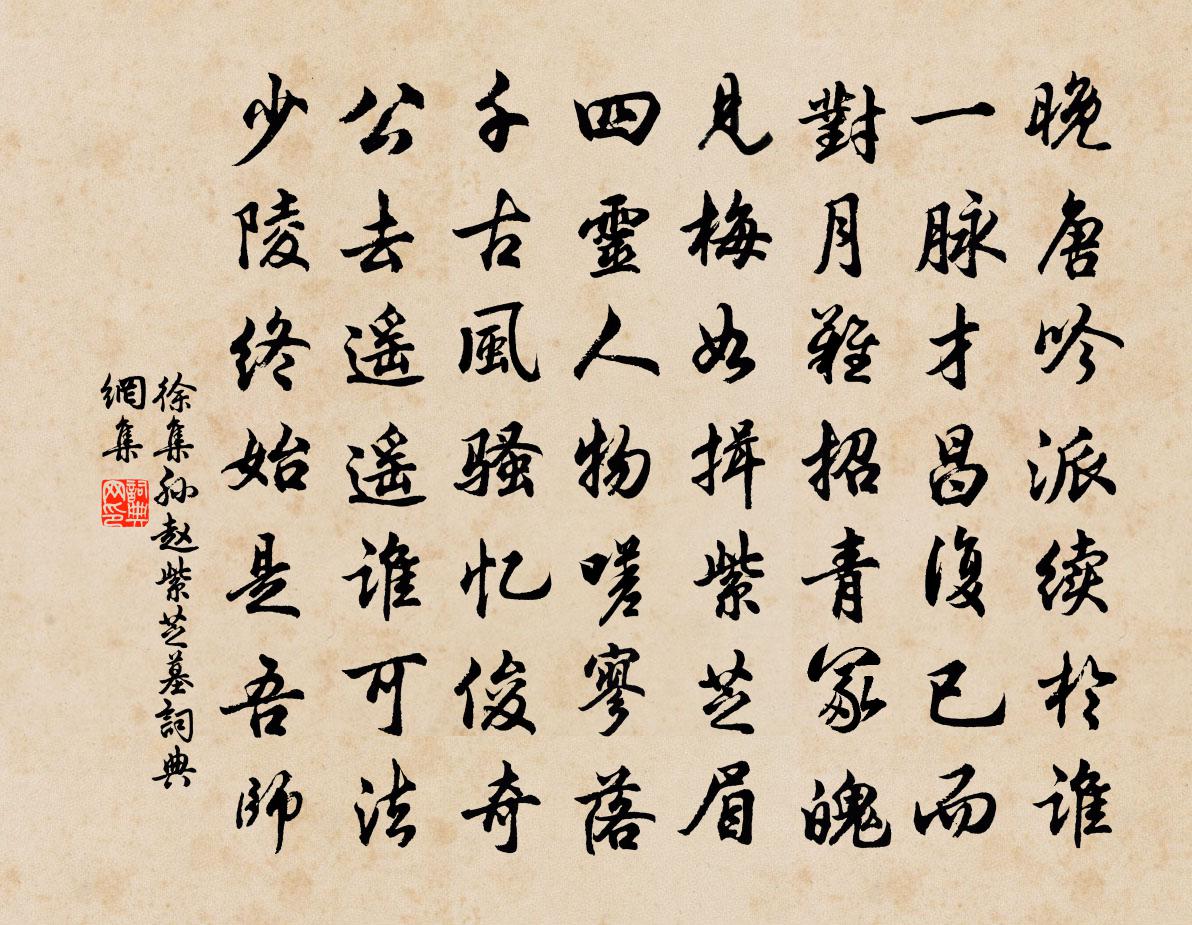 晚唐吟派续於谁
一脉才昌復已而
對月難招青冢魄
見梅如揖紫芝眉
四靈人物嗟寥落
千古風騷忆俊奇
公去遥遥谁可法
少陵终始是吾師
徐集孙赵紫芝墓詞典
網集
詞典网印